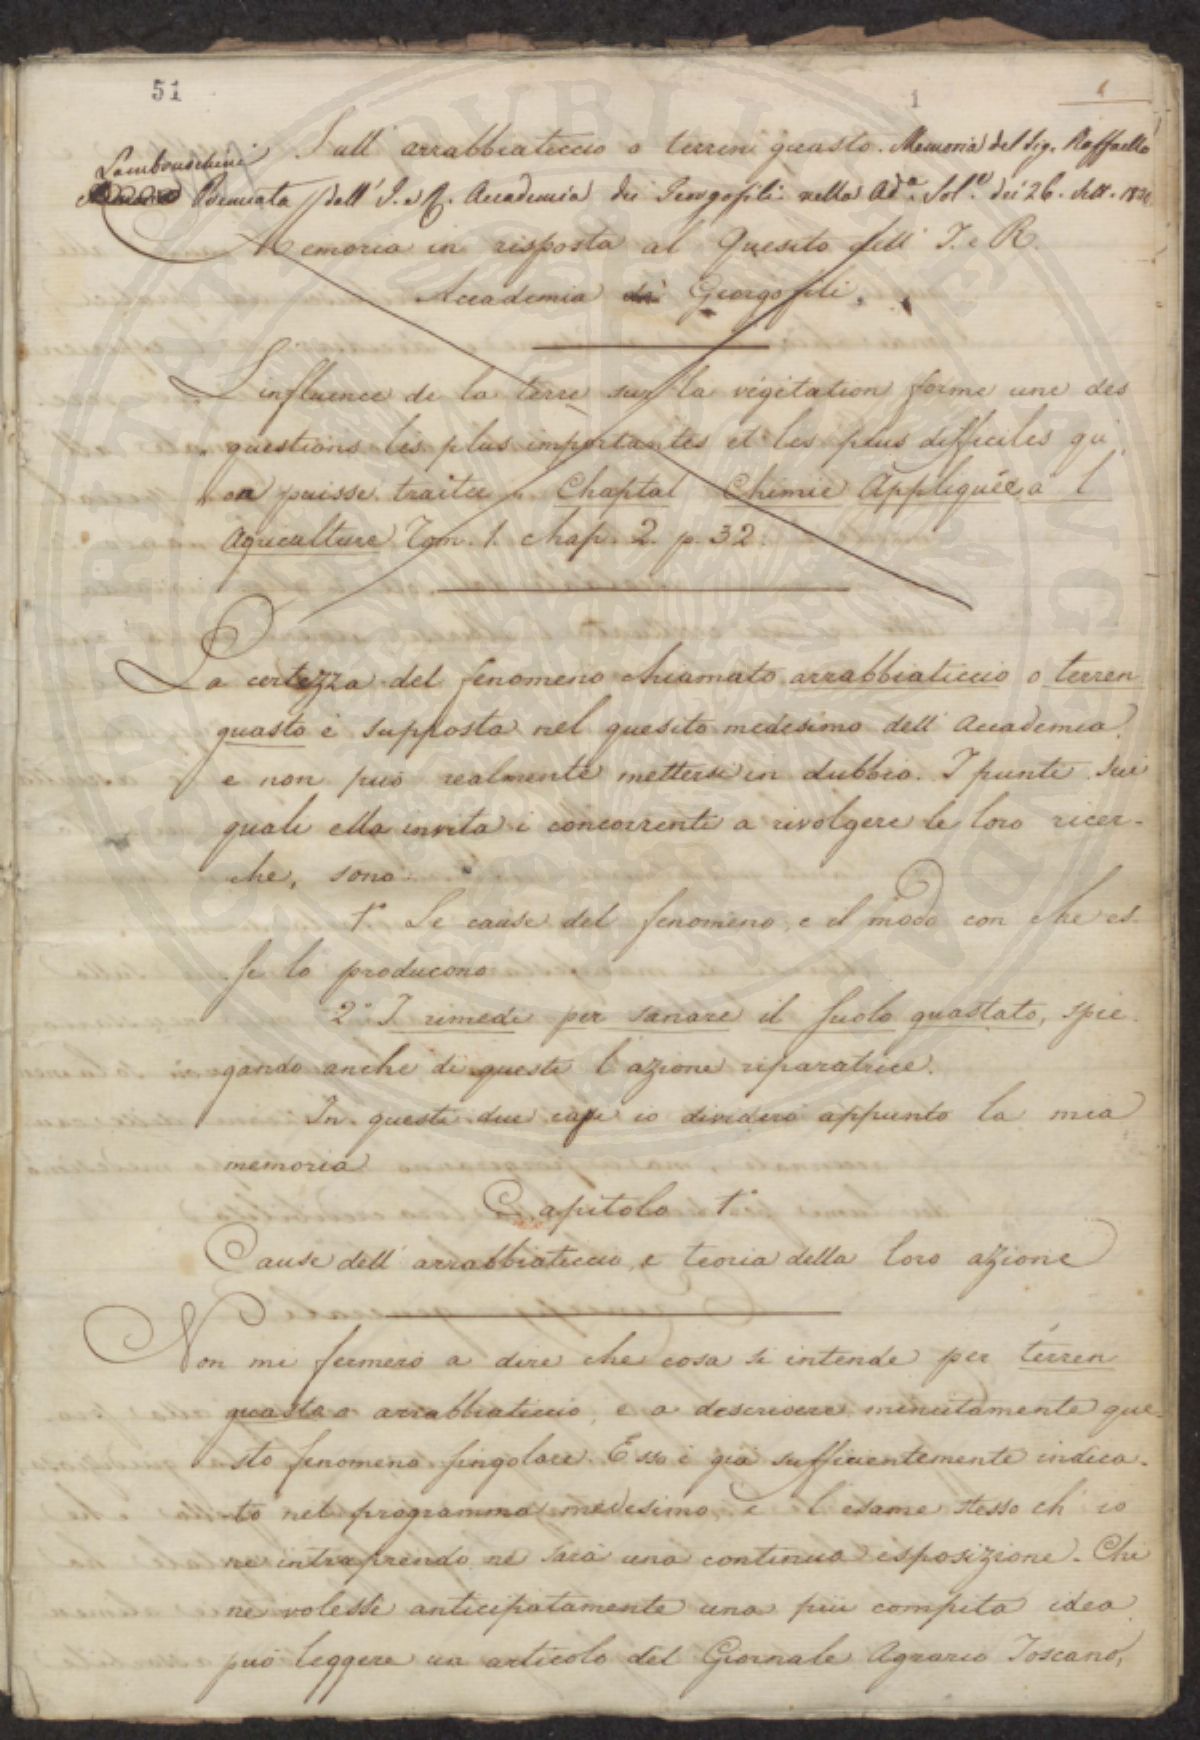 51
1
Sull' arrabbiaticcio o terren guasto. Memoria del Sig. Raffaello
Lambruschini
Premiata dall' I. e R. Accademia dei Georgofili nella Ad.a Sol.e dei 26. Sett.
Memoria in risposta al Quesito dell' I. e R.
Accademia dei Georgofili.
L'influence de la terre sur la végétation forme une des
questions les plus importantes et les plus difficiles qu'
on puisse traiter. Chaptal Chimie Appliquée a l'
Agriculture Tom. 1. chap. 2. p. 32.
La certezza del fenomeno chiamato arrabbiaticcio o terren
guasto è supposta nel quesito medesimo dell' Accademia,
e non può realmente mettersi in dubbio. I punti sui
quali ella invita i concorrenti a rivolgere le loro ricer-
che, sono
1.° Le cause del fenomeno, e il modo con che es-
se lo producono
2.° I rimedi per sanare il suolo guastato, spie-
gando anche di questi l'azione riparatrice.
In questi due capi io dividerò appunto la mia
memoria
Capitolo 1.°
Cause dell' arrabbiaticcio, e teoria della loro azione
Non mi fermerò a dire che cosa si intende per terren
guasto o arrabbiaticcio, e a descrivere minutamente que-
sto fenomeno singolare. Esso è già sufficientemente indica-
to nel programma medesimo, e l'esame stesso ch' io
ne intraprendo ne sarà una continua esposizione. Chi
ne volesse anticipatamente una più compita idea
può leggere un articolo del Giornale Agrario Toscano,